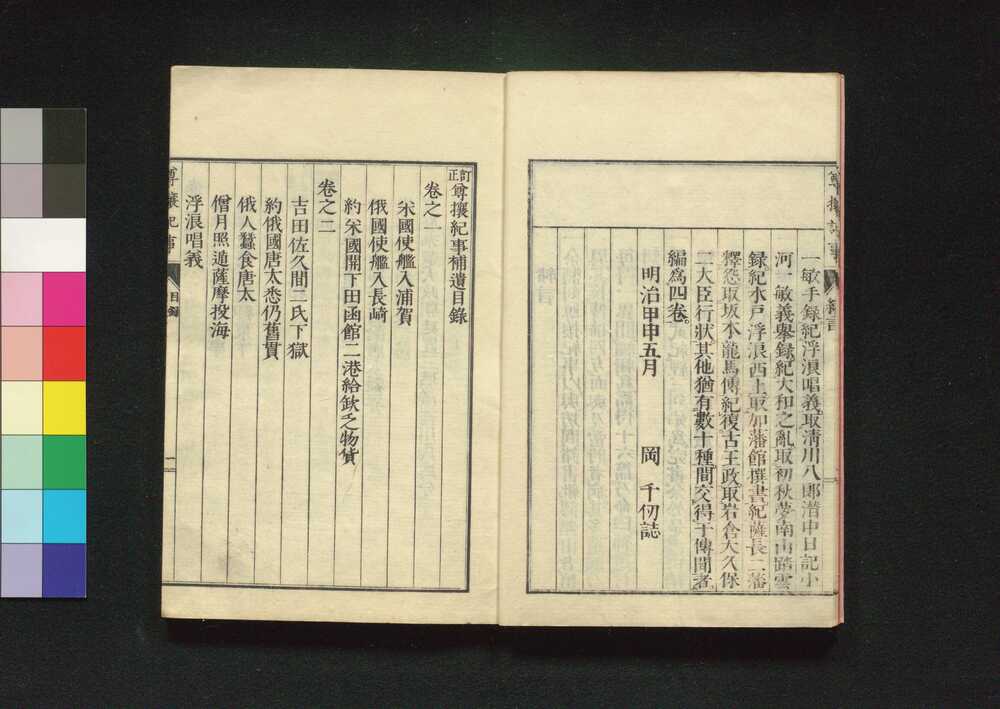 一敏手録紀浮浪唱義取清川八郎潜中日記小
河一敏義擧録紀大和之亂取初秋夢南山踏雲
録紀水戸浮浪西上取加藩館撰書紀薩長二藩
釋怨取坂本龍馬傳紀復古王政取岩倉大久保
二大臣行狀其他猶有數十種間交得于傳聞者
編爲四卷
明治甲申五月　岡千仞誌
尊攘紀事
緒言
訂正尊攘紀事補遺目錄
卷之一
米國使艦入浦賀
俄國使艦入長崎
約米國開下田函館二港給欽乏物貨
卷之二
吉田佐久間二氏下獄
約俄國唐太悉仍舊貫
俄人蠶食唐太
僧月照遁薩摩投海
浮浪唱義
尊攘紀事
目錄
一